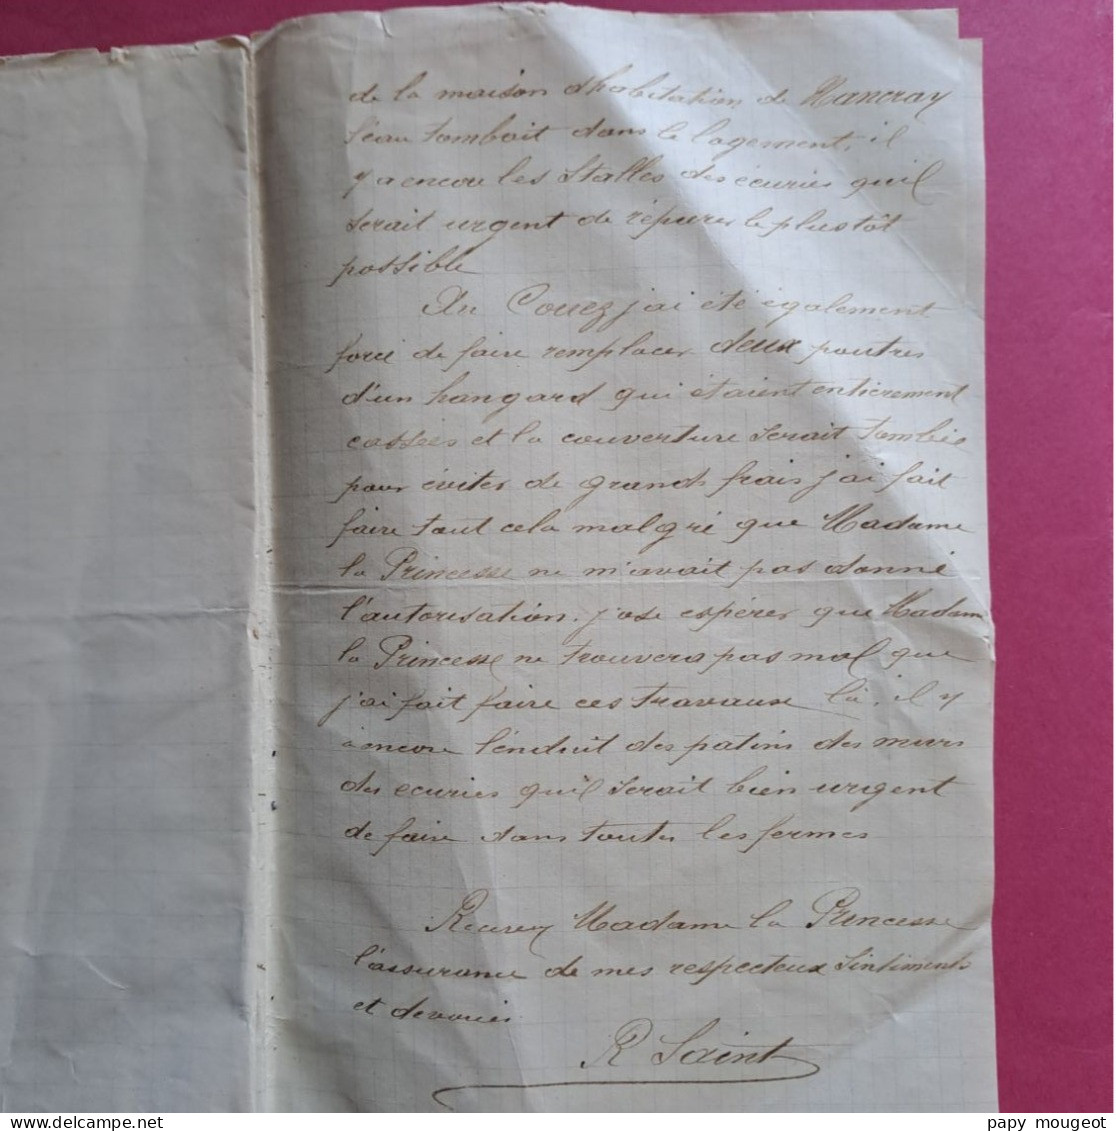 de la maison d'habitation de Nancray
l'eau tombait dans le logement, il
y a encore les Stalles des écuries quil
serait urgent de réparer le plustôt
possible
Au Couez j'ai été également
forcé de faire remplacer deux poutres
d'un hangard qui étaient entièrement
cassées et la couverture serait tombée
pour éviter de grands frais j'ai fait
faire tout cela malgré que Madame
la Princesse ne m'avait pas donné
l'autorisation. j'ose espérer que Madame
la Princesse ne trouvera pas mal que
j'ai fait faire ces travaux là, il y
a encore l'enduit des patins des murs
des ecuries quil serait bien urgent
de faire dans toutes les fermes
Recevez Madame la Princesse
l'assurance de mes respecteux sentiments
et devoués
R Saint
papy mougeot